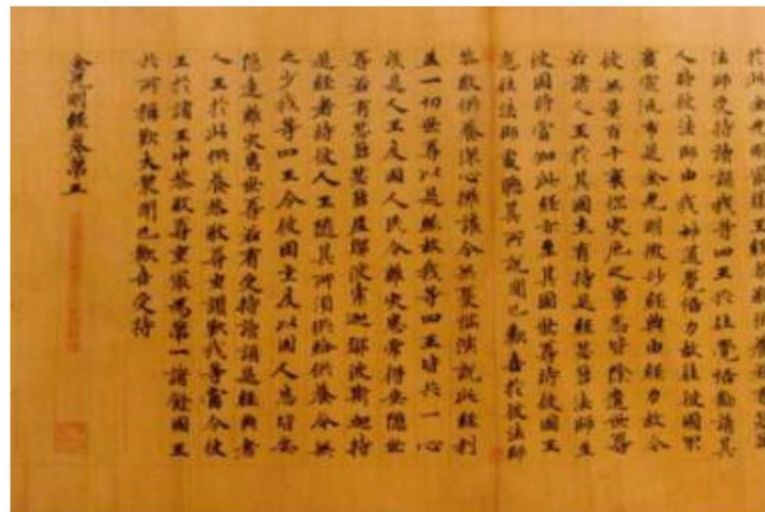 法師受持讀誦我等四王共往覺悟勸請其
人時彼法師由我神通覺悟力故往彼國界
廣宣流布是金光明微妙經典由經力故令
彼無量百千衰惱災厄之事悉皆除遣世尊
若諸人王於其國內有持是經苾芻法師至
彼國時當知此經亦至其國世尊時彼國王
應往法師處聽其所說聞已歡喜於彼法師
恭敬供養深心擁護令無憂惱演說此經利
益一切世尊以是緣故我等四王皆共一心
護是人王及國人民令離災患常得安隱世
尊若有苾芻苾芻尼鄔波索迦鄔波斯迦持
是經者時彼人王隨其所須供給供養令無
乏少我等四王令彼國主及以國人悉皆安
隱遠離災患世尊若有受持讀誦是經典者
人王於此供養恭敬尊重讚歎我等當令彼
王於諸王中恭敬尊重最為第一諸餘國王
共所稱歎大眾聞已歡喜受持
金光明經卷第五